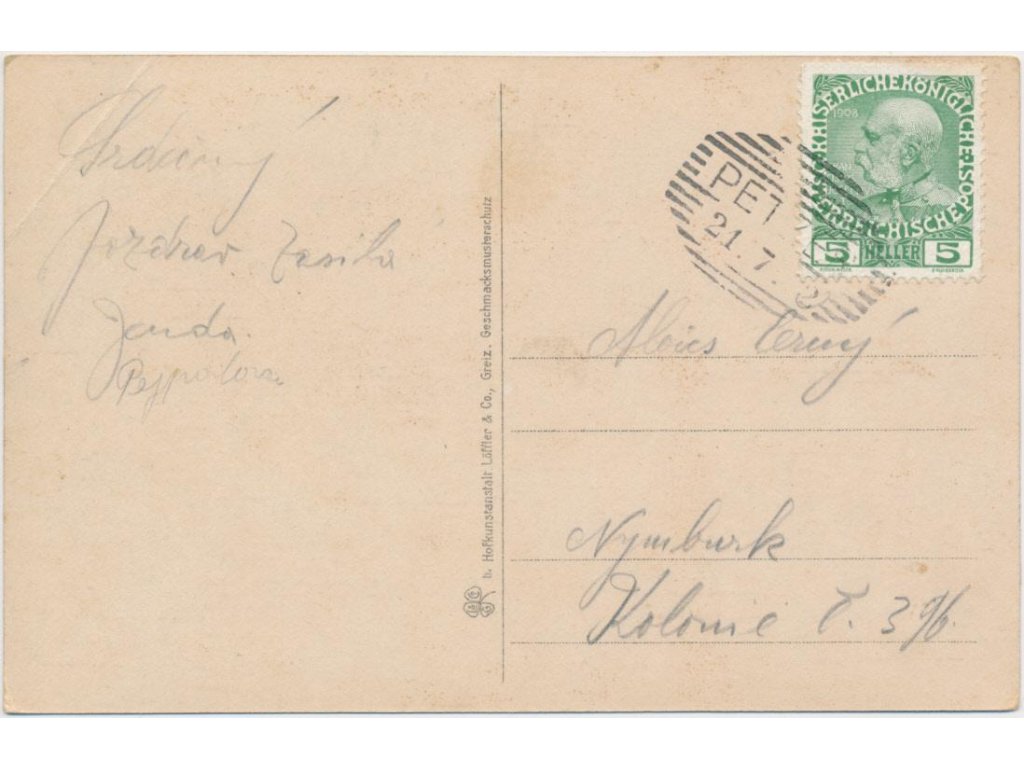 Srdečný
Pozdrav zasílá
Jenda
h. Hofkunstanstalt Löffler & Co., Greiz. Geschmacksmusterschutz
KAISERLICHE KÖNIGLICHE ÖSTERREICHISCHE POST
1908
5 HELLER 5
PET
21. 7
Alois Černý
Nymburk
Kolonie č. 396.